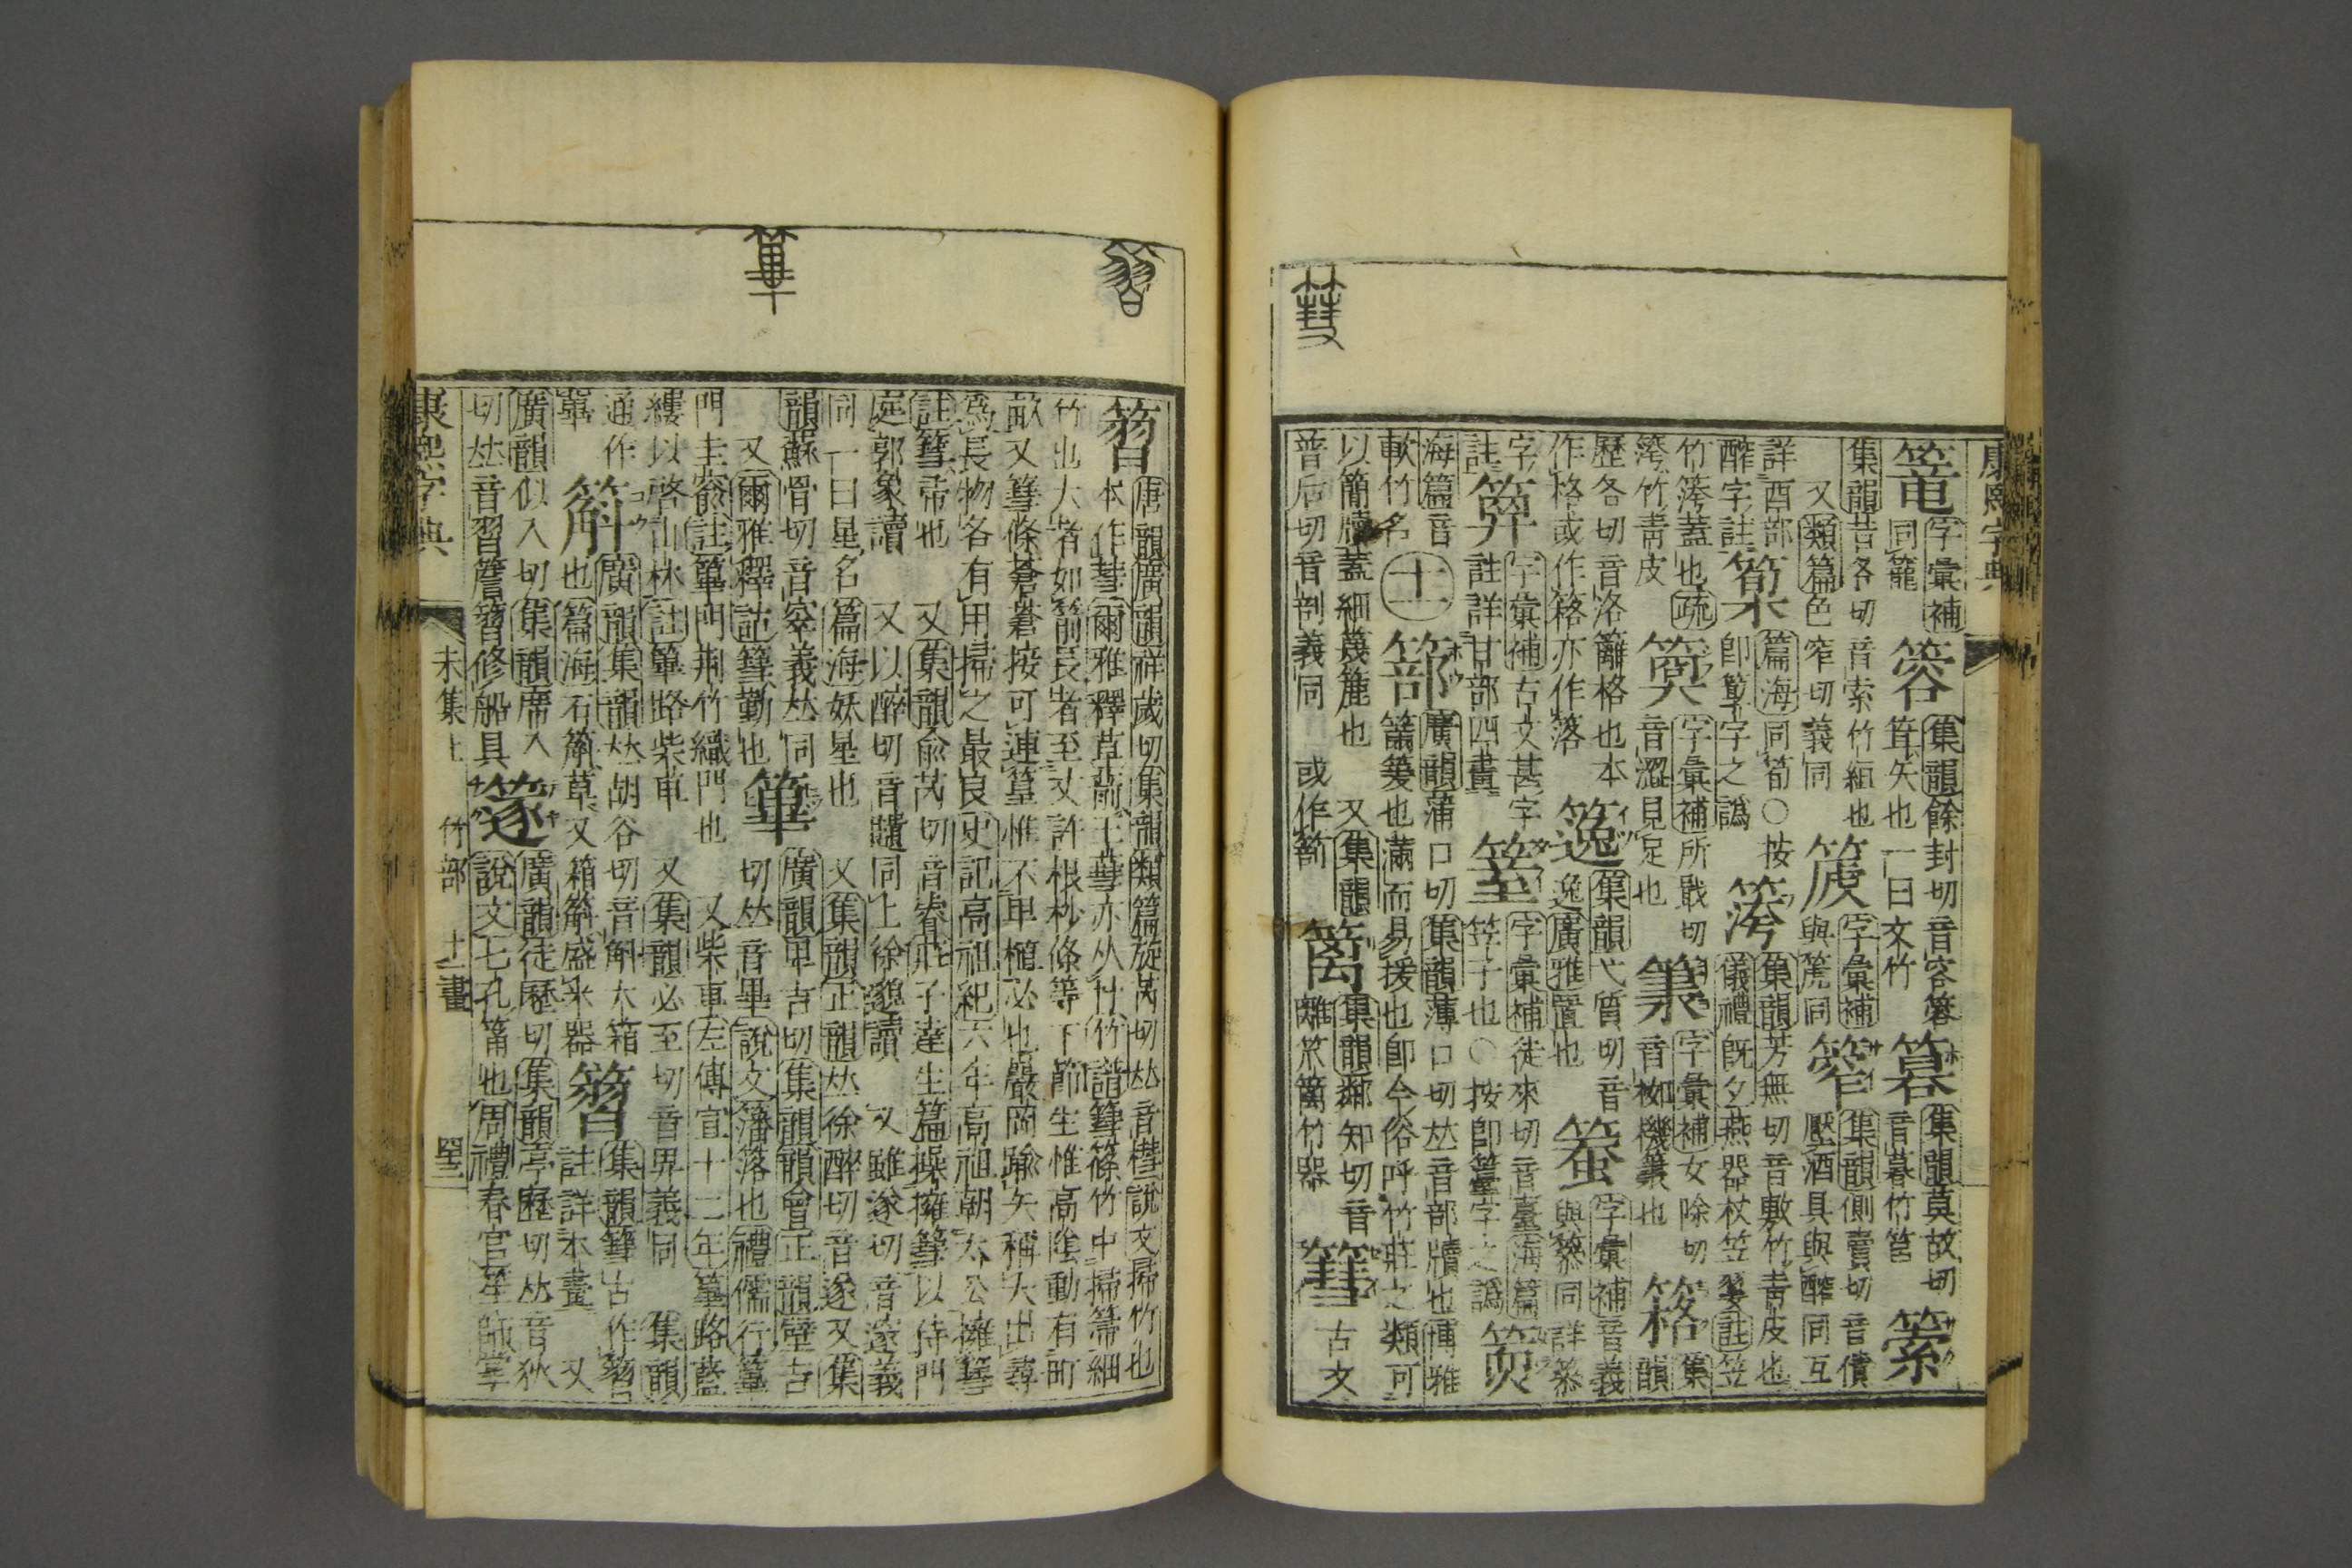 康熙字典
篭字彙補同籠 集韻餘封切音容筓矢也一曰文竹 集韻莫故切音暮竹筥
集韻昔各切音索竹絙也又類篇色窄切義同 字彙補與篪同 集韻側賣切音債壓酒具與醡同互
詳酉部醡字註 篇海同筍○按卽字之譌 集韻芳無切音敷竹靑皮也儀禮旣夕燕器杖笠翣註笠
竹蓋也疏竹靑皮 字彙補所戢切音澀見定也 字彙補女除切音機籆也 集韻
歷各切音洛籬格也本作格或作亦作落 集韻弋質切音逸廣雅置也 字彙補音義與同詳
字註 字彙補古文甚字註詳甘部四畫 字彙補徒來切音臺笠子也○按卽籉字之譌 海篇
海篇音軟竹名 十一 篰廣韻蒲口切集韻薄口切𠀤音部牘也博雅也滿而易援也卽今俗呼竹莊之類可
以簡牘蓋細篾簏也又集韻普后切音剖義同或作 篱集韻鄰知切音離笊篱竹器 篲古文
唐韻廣韻祥歲切集韻類篇旋芮切𠀤音槥說文掃竹也
本作彗爾雅釋草葥王蔧亦从竹竹譜篲篠竹中掃箒細
竹也大者如箭長者至丈許根杪條等下節生惟高隂動有町
畝又篲條蒼蒼接可連篁惟不卑植必也巖岡踰矢稱大出尋
爲長物各有用掃之最良史記高祖紀六年高祖朝太公擁篲
註篲帚也又集韻兪芮切音睿莊子達生篇操擁篲以侍門
庭郭象讀又以醉切音同上徐邈讀又雖遂切音邃義
同一曰星名篇海妖星也又集韻正韻𠀤徐醉切音遂又集
韻蘇骨切音窣義𠀤同 篳廣韻甲吉切集韻韻會正韻壁吉
又爾雅釋詁篲勤也切𠀤音畢說文藩落也禮儒行篳
門圭窬註篳門荆竹織門也又柴車左傳宣十二年篳路藍
縷以啓山林註篳路柴車又集韻必至切音畀義同集韻
通作蓽 廣韻集韻𠀤胡谷切音斛大箱也篇海石草又箱盛米器 集韻篲古作註詳本畫又
廣韻似入切集韻席入切𠀤音習簷修船具 篴廣韻徒歷切集韻亭歷切𠀤音狄說文七孔筩也周禮春官笙師掌
康熙字典 未集上 竹部 十一畫